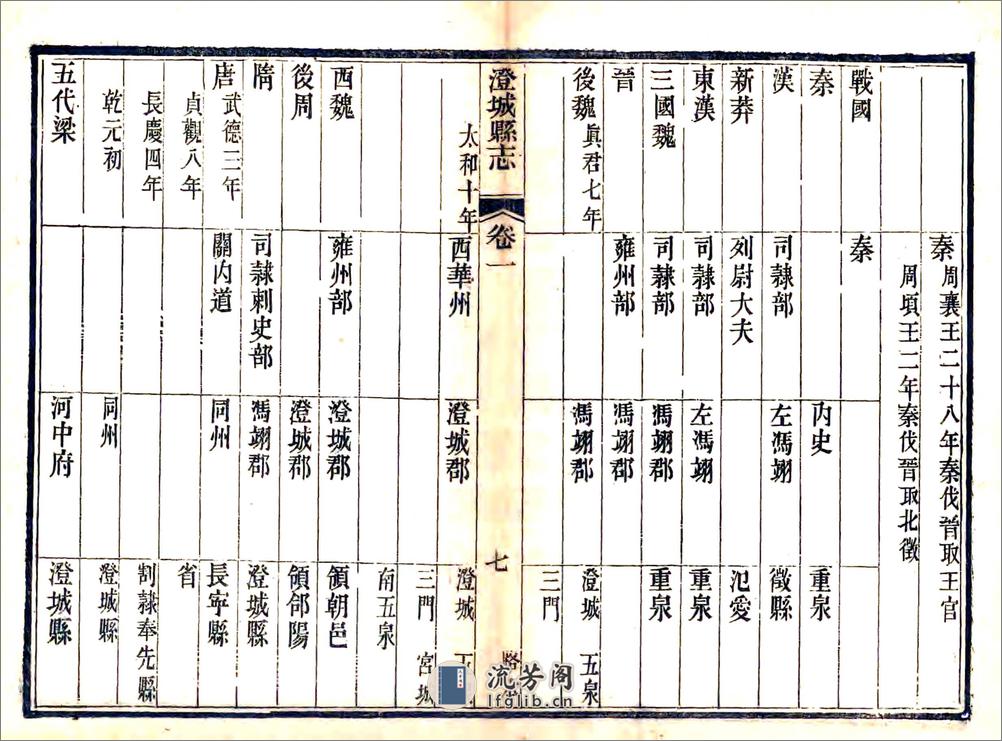 秦 周襄王二十八年秦伐晉取王官
周頃王二年秦伐晉取北徵
戰國 秦
秦 內史 重泉
漢 司隸部 左馮翊 徵縣
新莽 列尉大夫 氾愛
東漢 司隸部 左馮翊 重泉
三國魏 司隸部 馮翊郡 重泉
晉 雍州部 馮翊郡
後魏 真君七年 馮翊郡 澄城 五泉
三門
澄城縣志 卷一 七
太和十年 西華州 澄城郡 澄城
三門 宮城
南五泉
西魏 雍州部 澄城郡 領朝邑
後周 澄城郡 領郃陽
隋 司隸刺史部 馮翊郡 澄城縣
唐 武德三年 關內道 同州 長寧縣
貞觀八年 省
長慶四年 割隸奉先縣
乾元初 同州 澄城縣
五代梁 河中府 澄城縣
流芳阁
lfglib.cn